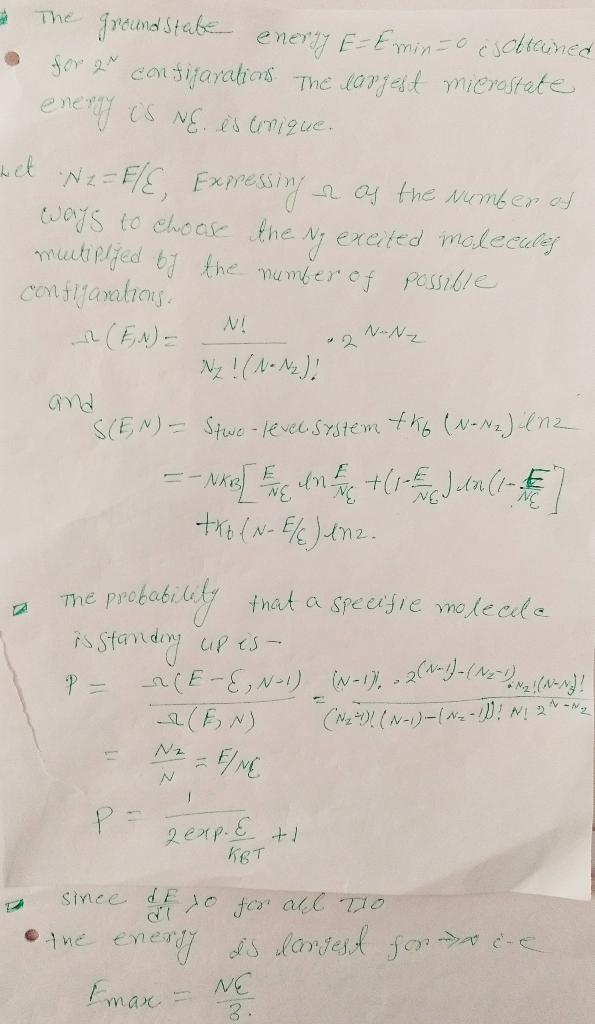 The groundstate energy E=Emin=0 is obtained
for 2^N configarations. The largest microstate
energy is Nε. is unique.
Let Nz=E/ε, Expressing Ω as the number of
ways to choose the Nz excited molecules
multiplied by the number of possible
configarations.
Ω(E,N) = N! / Nz!(N-Nz)! · 2^(N-Nz)
and
S(E,N) = Stwo-level system + kb (N-Nz) ln2
= -NKB[E/Nε ln E/Nε + (1-E/Nε) ln (1-E/Nε)]
+kb (N-E/ε) ln2.
The probability that a specific molecule
is standing up is -
P = Ω(E-ε, N-1) / Ω(E,N) = (N-1)! · 2^((N-1)-(Nz-1)) · Nz!(N-Nz)! / (Nz-1)!((N-1)-(Nz-1))! N! 2^(N-Nz)
= Nz/N = E/Nε
P = 1 / 2 exp. ε/KBT +1
Since dE/dT >0 for all T>0
the energy is largest for →∞ i-e
Emax = Nε/3.